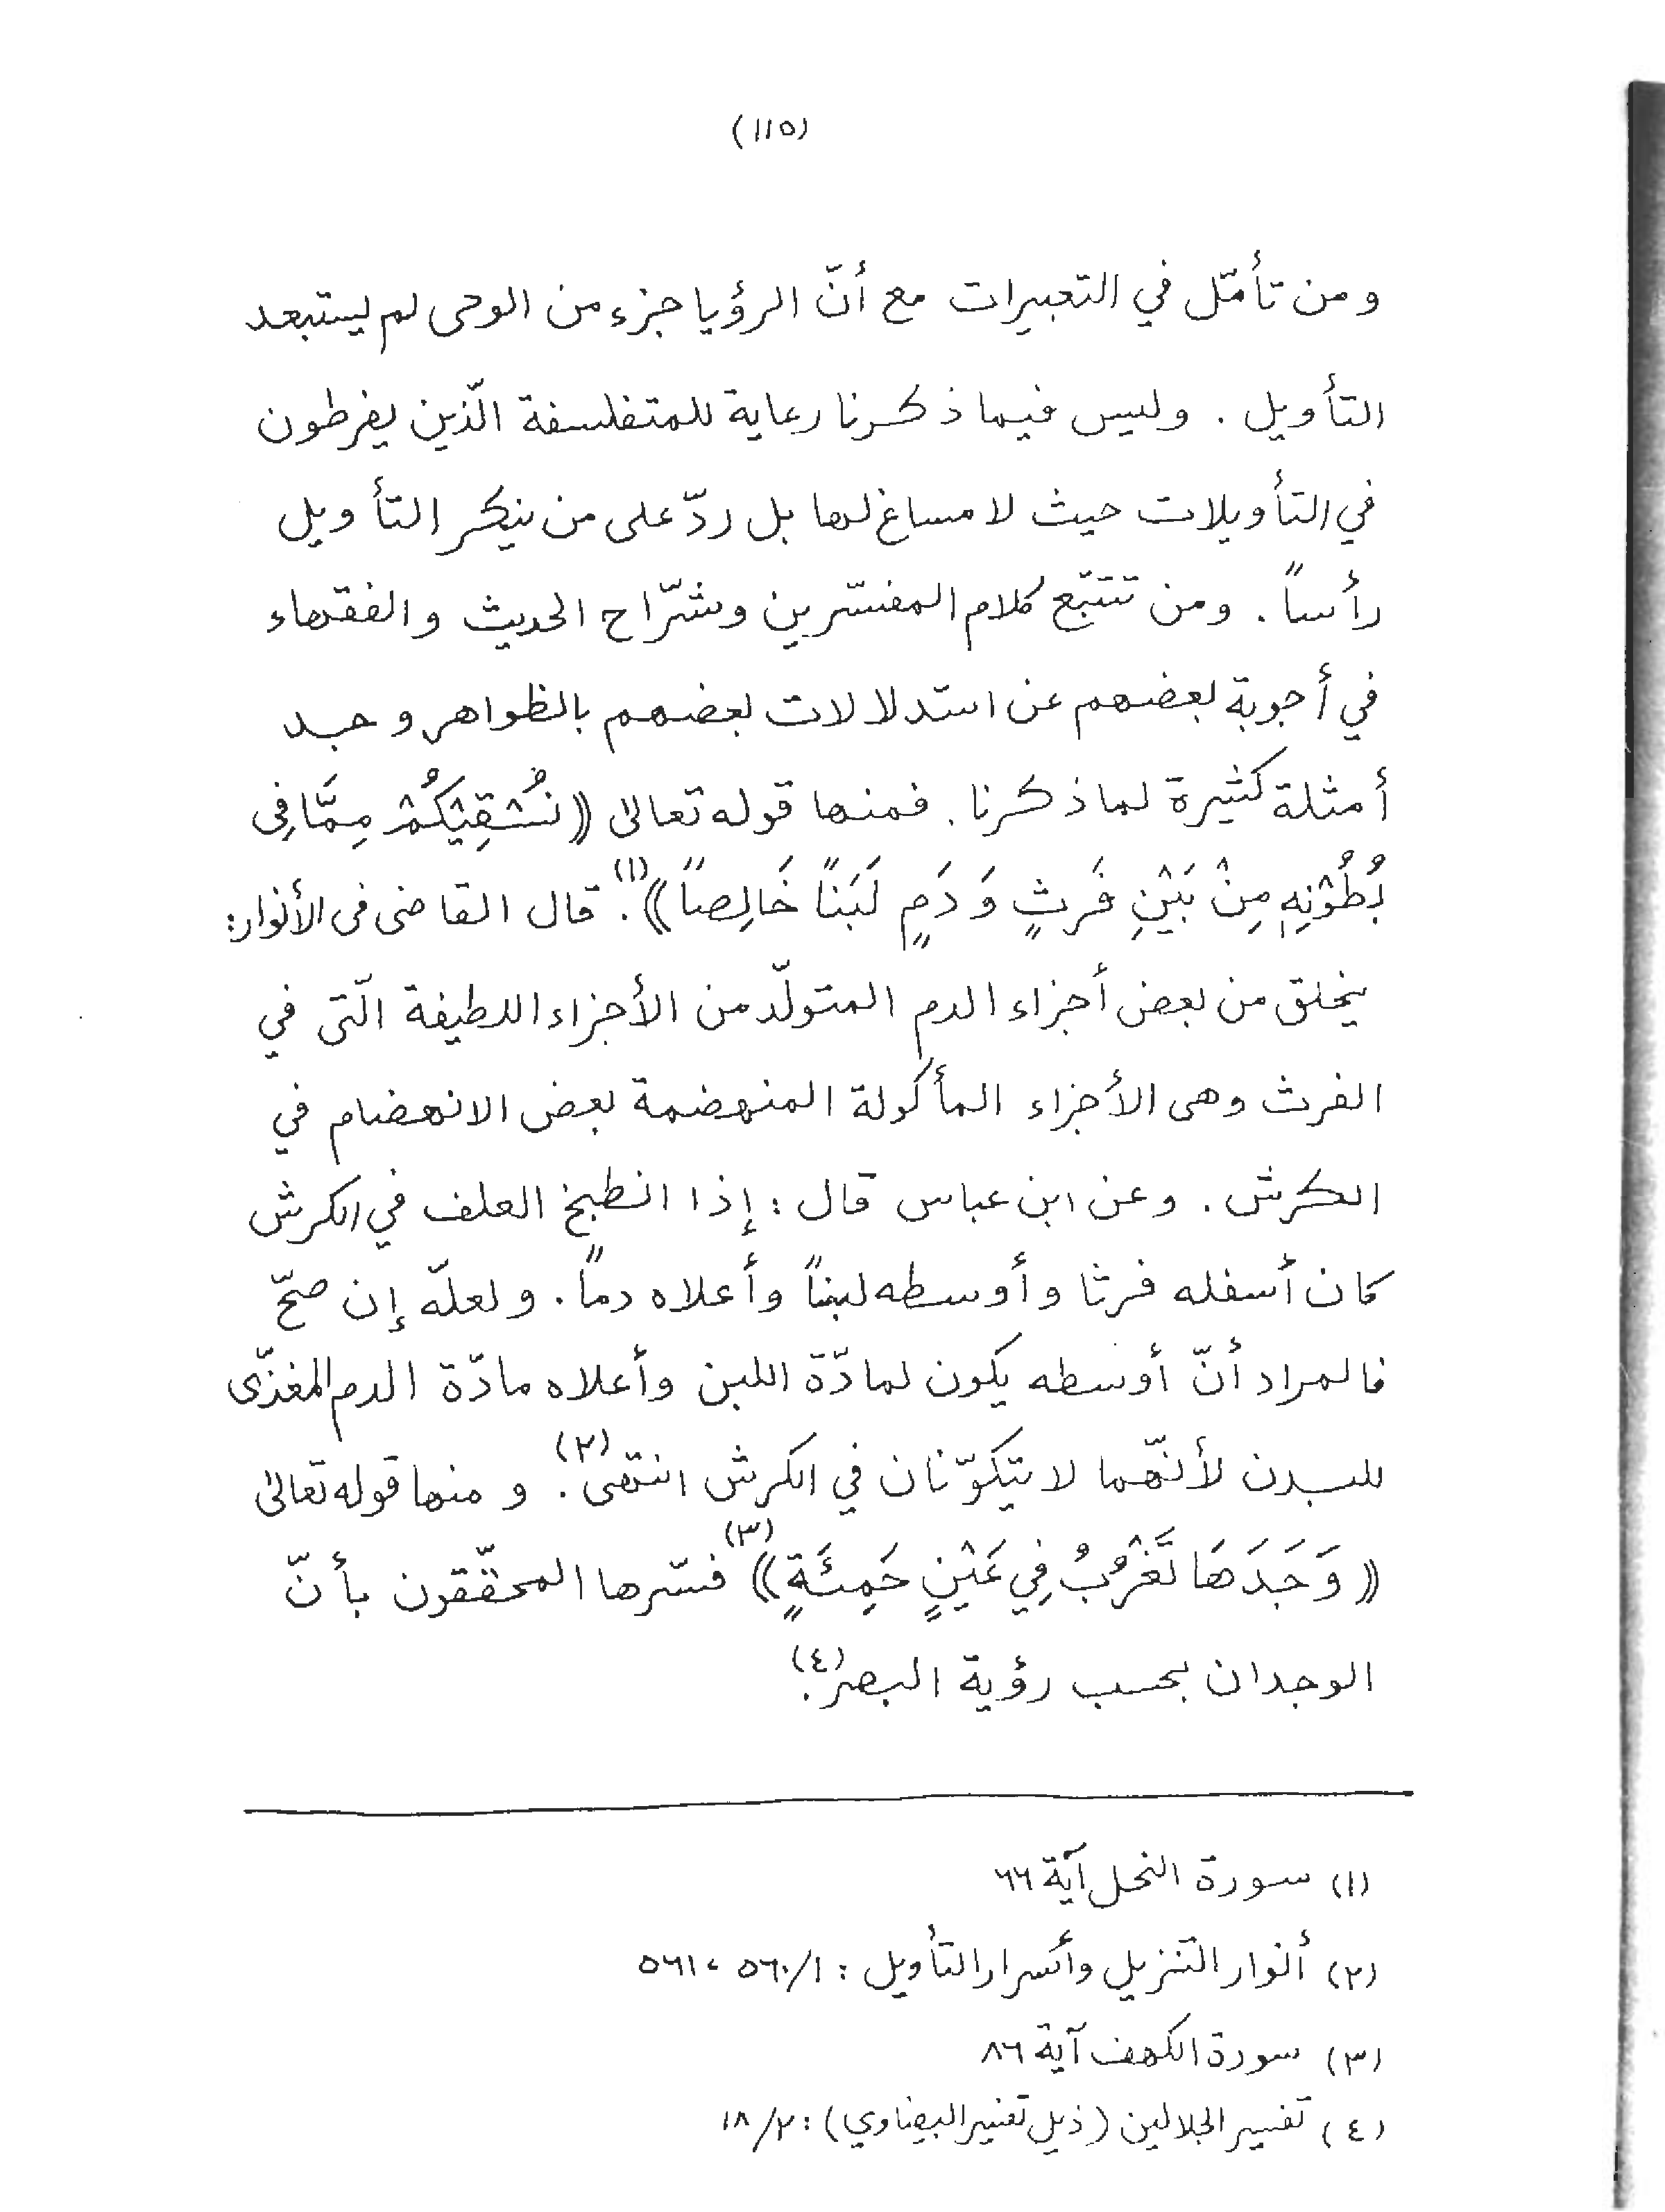 (١١٥)
ومن تأمّل في التعبيرات مع أنّ الرؤيا جزء من الوحى لم يستبعد
التأويل . وليس فيما ذكرنا رعاية للمتفلسفة الّذين يفرطون
في التأويلات حيث لا مساغ لها بل ردّ على من ينكر التأويل
رأساً . ومن تتبّع كلام المفسّرين وشرّاح الحديث والفقهاء
في أجوبة بعضهم عن استدلالات بعضهم بالظواهر وجد
أمثلة كثيرة لما ذكرنا . فمنها قوله تعالى ((نُسْقِيْكُمْ مِمَّا فِى
بُطُوْنِهٖ مِنْ بَيْنِ فَرثٍ وَ دَمٍ لَبَنًا خَالِصاً))(١). قال القاضى فى الأنوار:
يخلق من بعض أجزاء الدم المتولّد من الأجزاء اللطيفة الّتى في
الفرث وهى الأجزاء المأكولة المنهضمة بعض الانهضام في
الكرش . وعن ابن عباس قال : إذا انطبخ العلف في الكرش
كان أسفله فرثا وأوسطه لبناً وأعلاه دماً . ولعلّه إن صحّ
فالمراد أنّ أوسطه يكون لمادّة اللبن وأعلاه مادّة الدم المغذّى
للبدن لأنّهما لا يتكوّنان في الكرش انتهى(٢). و منها قوله تعالىٰ
((وَجَدَهَا تَغْرُبُ فِي عَيْنٍ حَمِئَةٍ))(٣) فسّرها المحقّقون بأنّ
الوجدان بحسب رؤية البصر(٤).
(١) سورة النحل آية ٦٦
(٢) أنوار التنزيل وأسرار التأويل : ٥٦٠/١ ، ٥٦١
(٣) سورة الكهف آية ٨٦
(٤) تفسير الجلالين (ذيل تفسير البيضاوي) : ١٨/٢